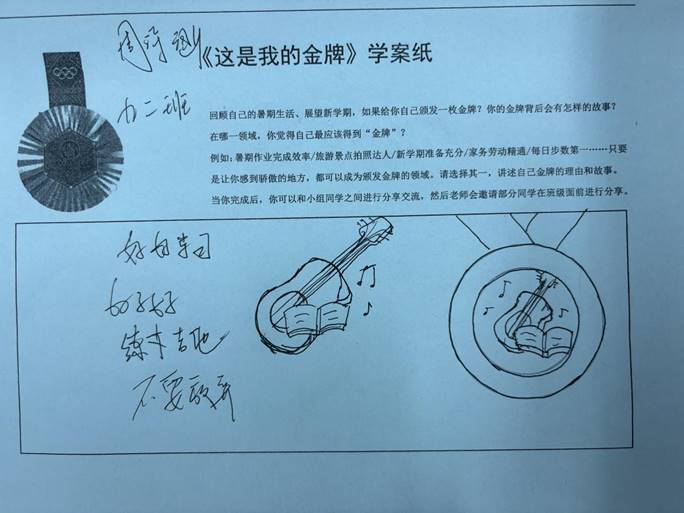 《这是我的金牌》学案纸
回顾自己的暑期生活、展望新学期，如果给你自己颁发一枚金牌？你的金牌背后会有怎样的故事？
在哪一领域，你觉得自己最应该得到“金牌”？
例如：暑期作业完成效率/旅游景点拍照达人/新学期准备充分/家务劳动精通/每日步数第一……只要
是让你感到骄傲的地方，都可以成为颁发金牌的领域。请选择其一，讲述自己金牌的理由和故事。
当你完成后，你可以和小组同学之间进行分享交流，然后老师会邀请部分同学在班级面前进行分享。
二班
好好学习
好好
练吉他
不要放弃